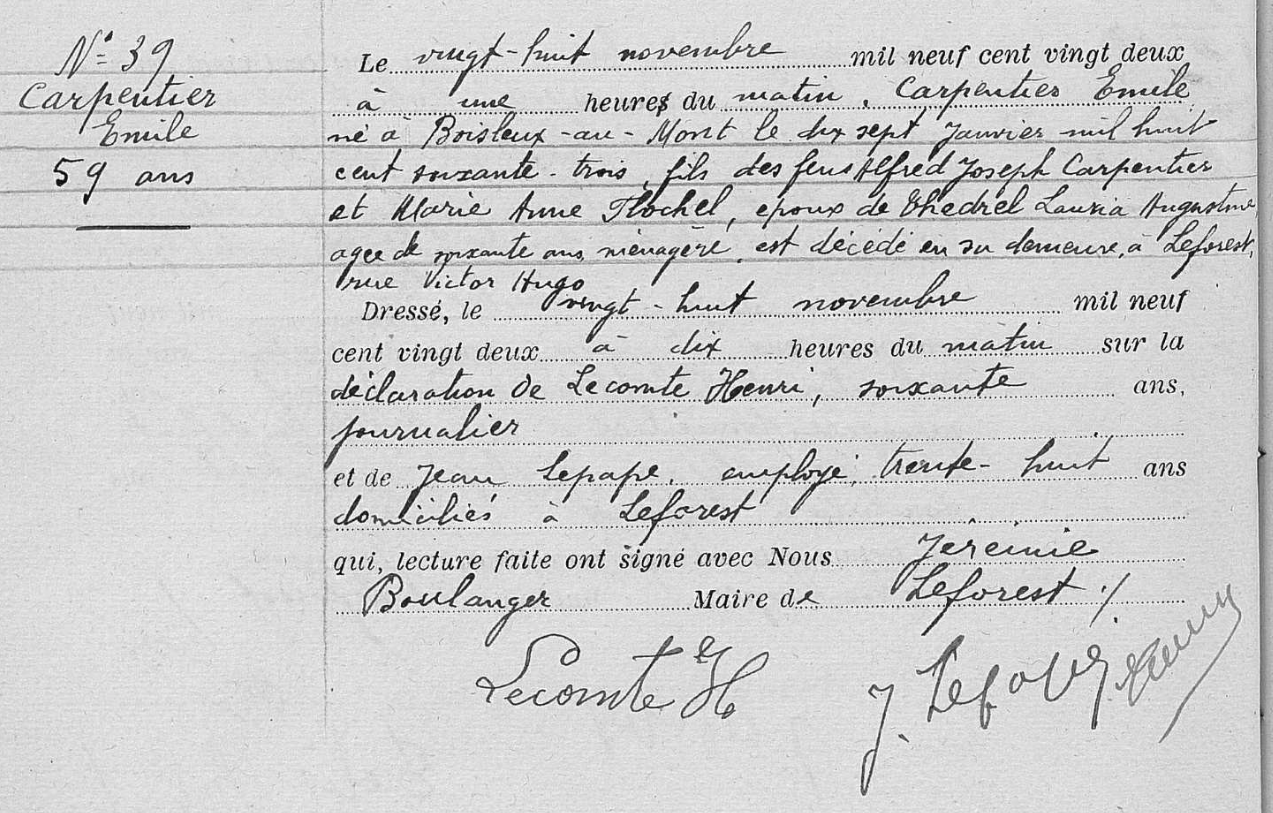 N° 39
Carpentier
Emile
59 ans
Le vingt-huit novembre mil neuf cent vingt deux
à une heures du matin, Carpentier Emile
né à Boisleux-au-Mont le dix sept Janvier mil huit
cent soixante-trois, fils des feus Alfred Joseph Carpentier
et Marie Anne Flochel, epoux de Augustine
agée de soixante ans, ménagère, est décédé en sa demeure, à Leforest,
rue Victor Hugo
Dressé, le vingt-huit novembre mil neuf
cent vingt deux à dix heures du matin sur la
déclaration de Lecomte Henri, soixante ans,
journalier
et de Jean Lepape, employé, trente-huit ans
domiciliés à Leforest
qui, lecture faite ont signé avec Nous Jéremie
Boulanger Maire de Leforest ./
Lecomte H
J. Lepape